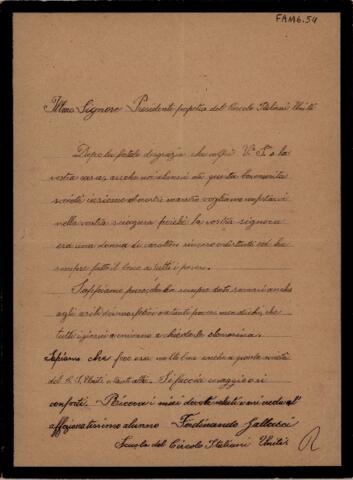 FAM6.54
Illmo Signore Presidente perpetuo del Circolo Italiani Uniti
Dopo la fatale disgrazia che colpì V. S. e la
vostra casa, anche noi alunni di questa benemerita
società insieme al nostro maestro vogliamo
nella vostra sciagura perchè la vostra signora
era una donna di carattere sincero e distinto ed ha
sempre fatto il bene a tutti i poveri.
Sappiamo pure che ha sempre dato soccorsi anche
agli asili e tanti poveri che
tutti i giorni a chiedere la elemosina.
Sapiamo che fece era molto bene anche a questa società
del C. I. Uniti e tante altre. Si faccia coraggio e si
conforti. Riceva i miei devoti saluti e mi creda l'
affezionatissimo alunno Ferdinando Gallucci
Scuola del Circolo Italiani Uniti